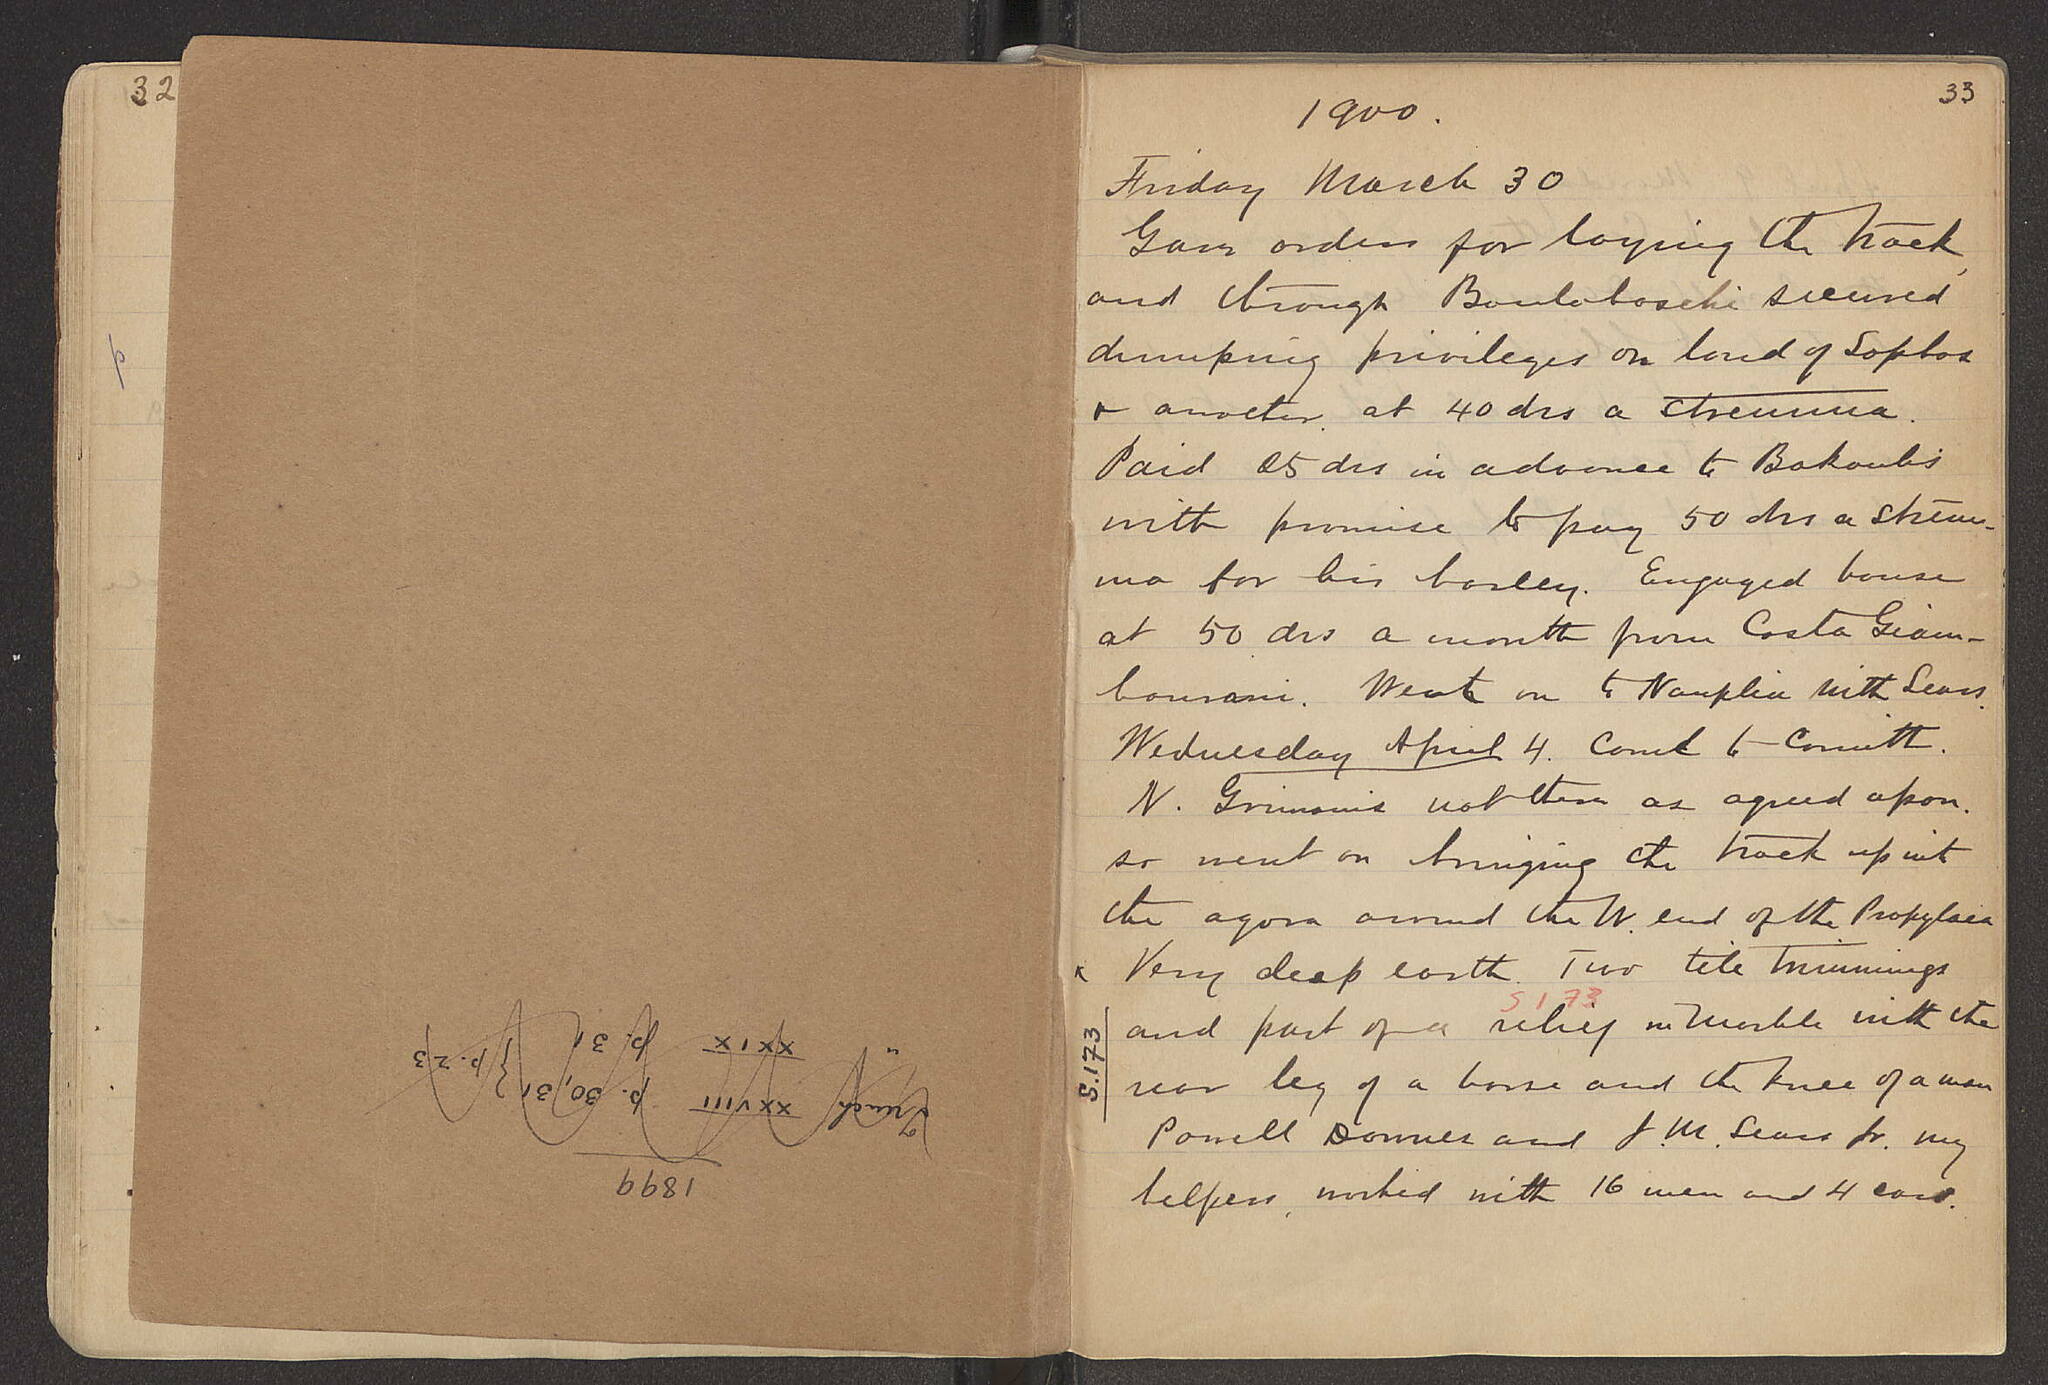 32
p
1899
Trench XXVIII p. 30, 31 } p. 23
" XXIX p. 31
33
1900.
Friday March 30
Gave orders for laying the track,
and through secured
dumping privileges on land of Sophos
& another at 40 drs a stremma.
Paid 25 drs in advance to Bakoulis
with promise to pay 50 drs a strem-
ma for his barley. Engaged house
at 50 drs a month from Costa Giam-
bourani. Went on to Nauplia with Sears.
Wednesday April 4. Came to Corinth.
N. Grimanis not there as agreed upon.
so went on bringing the track up into
the agora around the W. end of the Propylaea
x Very deep earth. Two tile trimmings
S 173
and part of a relief in Marble with the
S.173
rear leg of a horse and the knee of a man
Powell Downes and J. M. Sears Jr. my
helpers, worked with 16 men and 4 cars.